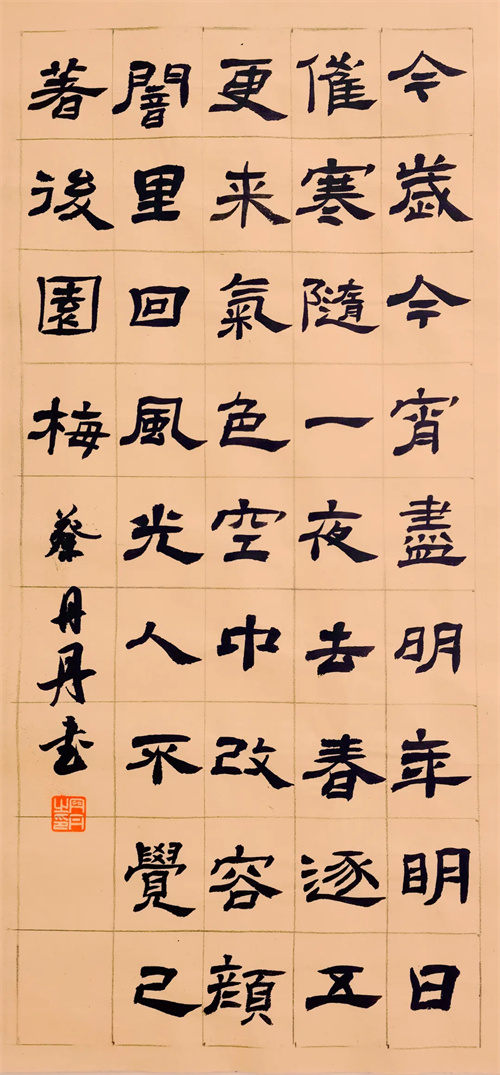 今歲今宵盡明年明日
催寒隨一夜去春逐五
更来氣色空中改容顏
闇里回風光人不覺已
著後園梅 蔡丹丹书
丹丹之印